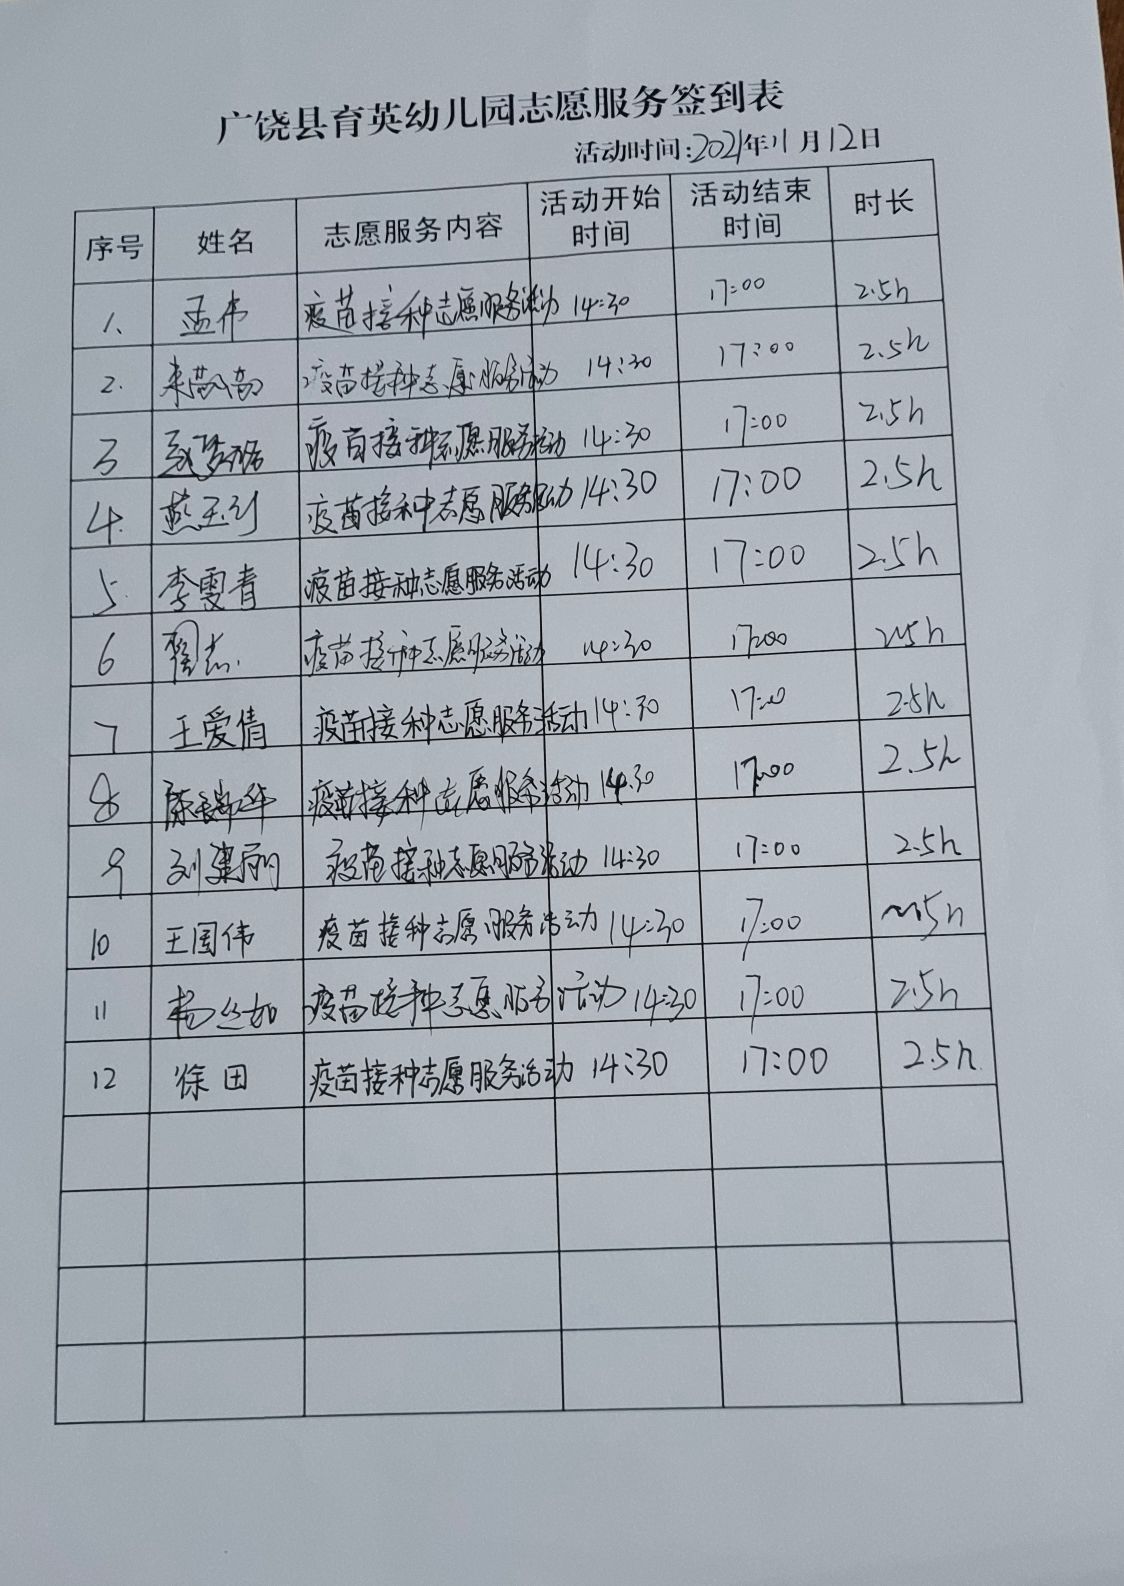 广饶县育英幼儿园志愿服务签到表
活动时间:2021年11月12日
序号 姓名 志愿服务内容 活动开始时间 活动结束时间 时长
1、 孟伟 疫苗接种志愿服务活动 14:30 17:00 2.5h
2. 疫苗接种志愿服务活动 14:30 17:00 2.5h
3 疫苗接种志愿服务活动 14:30 17:00 2.5h
4. 疫苗接种志愿服务活动 14:30 17:00 2.5h
5. 李雯青 疫苗接种志愿服务活动 14:30 17:00 2.5h
6 疫苗接种志愿服务活动 14:30 17:00 2.5h
7 王爱倩 疫苗接种志愿服务活动 14:30 17:00 2.5h
8 疫苗接种志愿服务活动 14:30 17:00 2.5h
9 刘建丽 疫苗接种志愿服务活动 14:30 17:00 2.5h
10 王国伟 疫苗接种志愿服务活动 14:30 17:00 2.5h
11 疫苗接种志愿服务活动 14:30 17:00 2.5h
12 徐田 疫苗接种志愿服务活动 14:30 17:00 2.5h